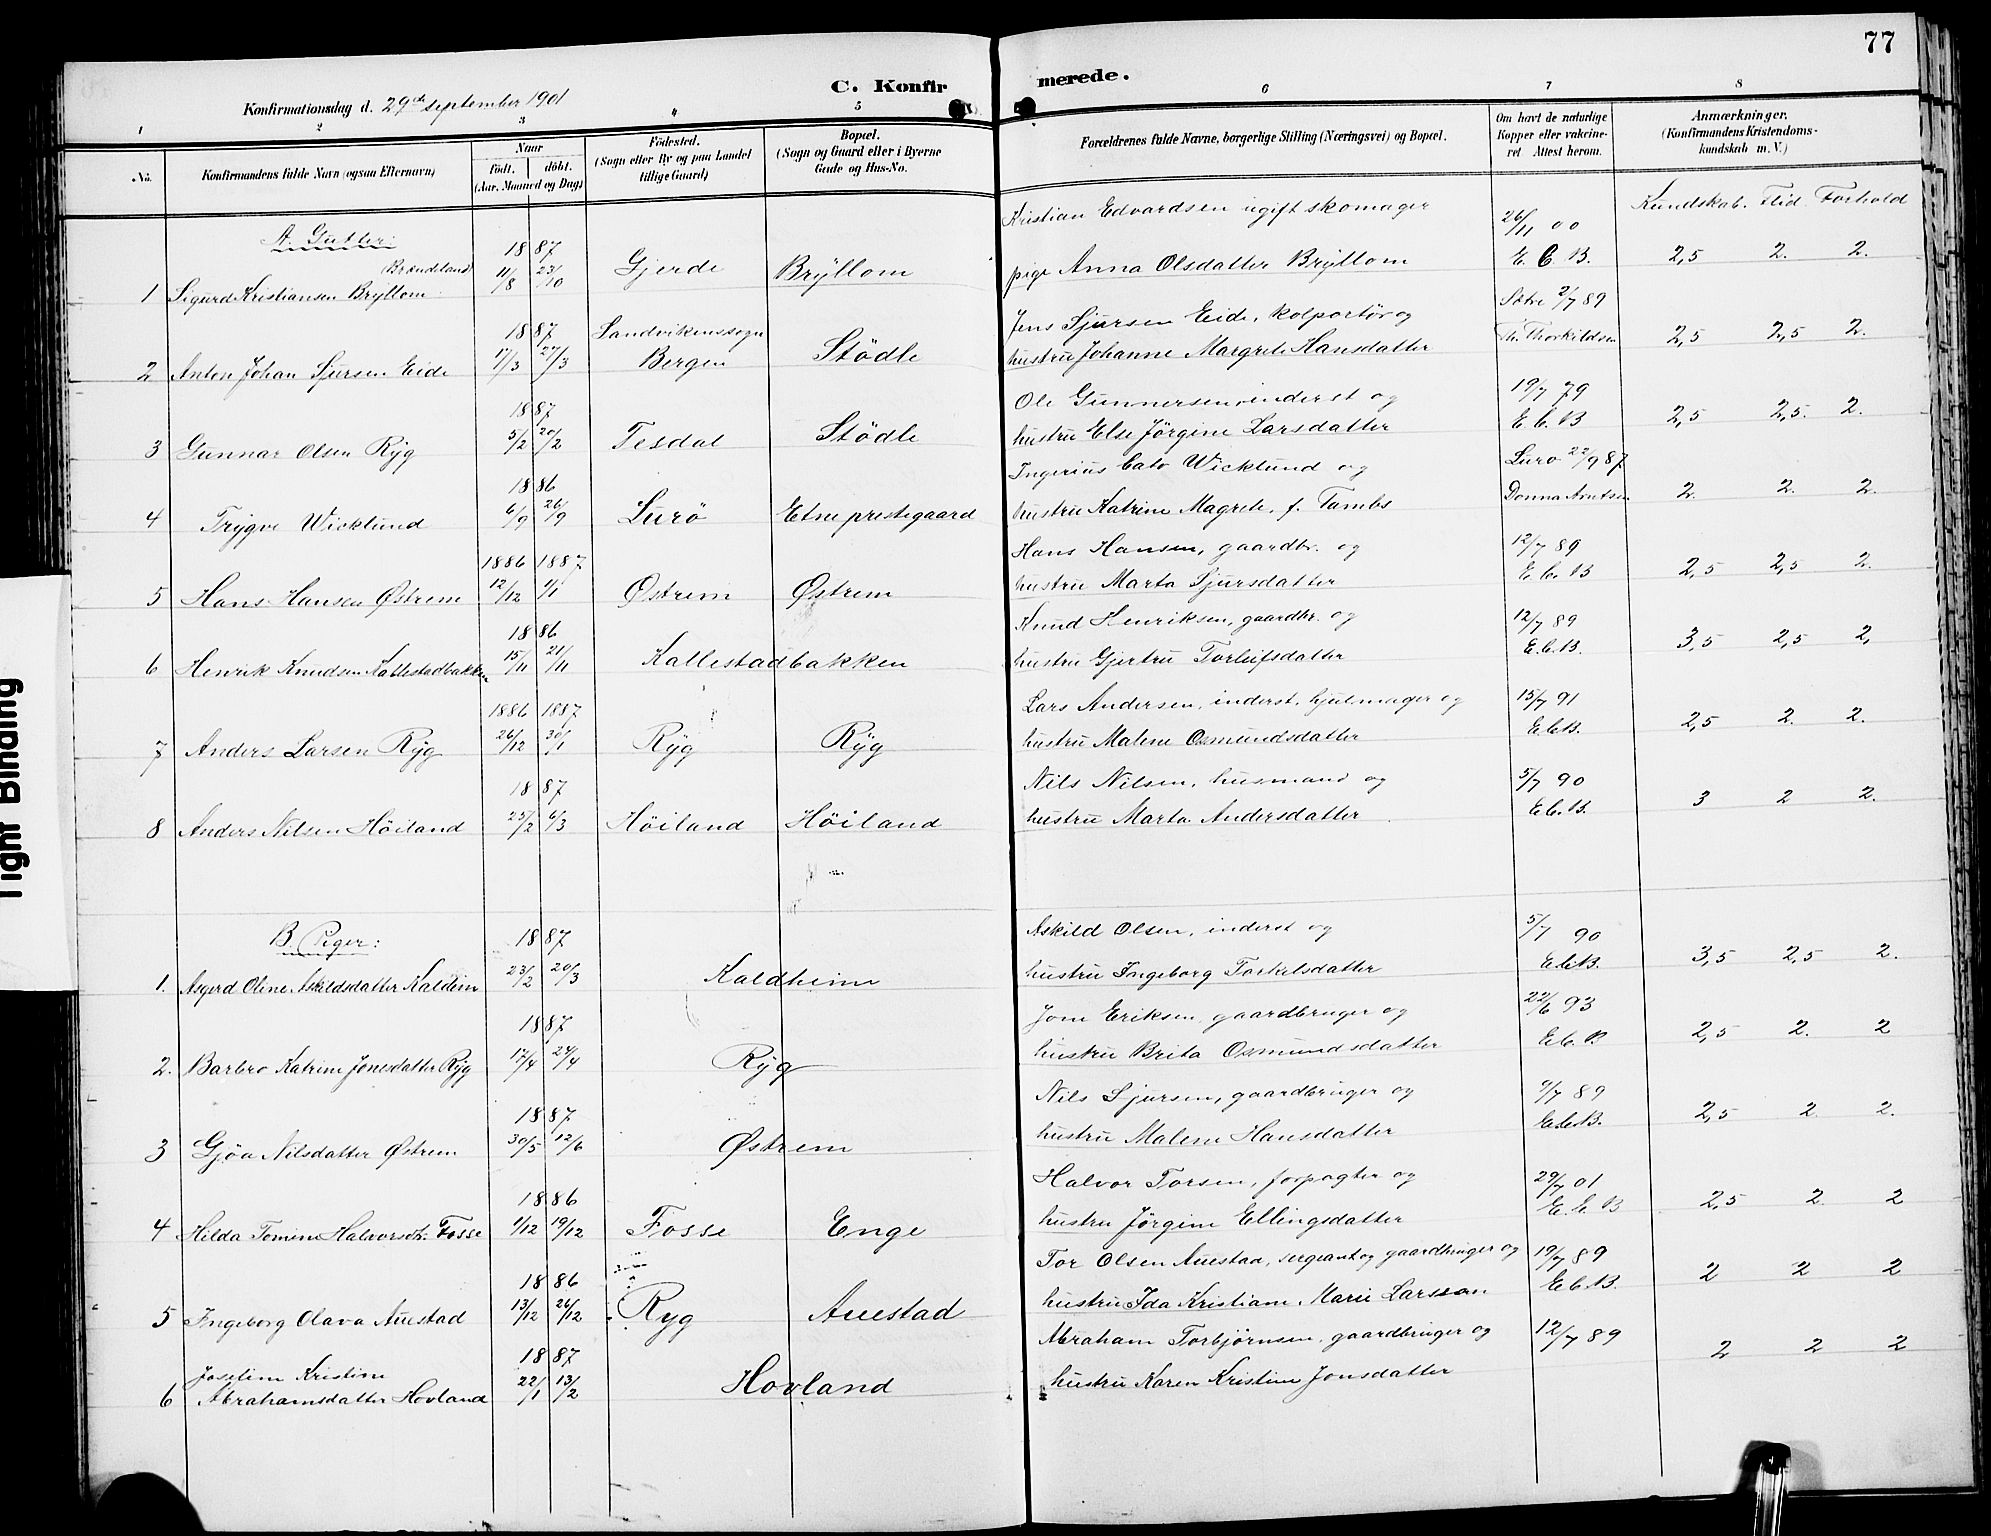 77
C. Konfirmerede.
Konfirmationsdag d. 29de september 1901
1 2 3 4 5 6 7 8
No. Konfirmandens fulde Navn (ogsaa Efternavn) Naar født. døbt. (Aar, Maaned og Dag) Fødested. (Sogn eller By og paa Landet tillige Gaard) Bopæl. (Sogn og Gaard eller i Byerne Gade og Hus-No. Forældrenes fulde Navne, borgerlige Stilling (Næringsvei) og Bopæl. Om havt de naturlige Kopper eller vakcineret. Attest herom. Anmærkninger. (Konfirmandens Kristendomskundskab m. V.)
Kundskab. Flid. Forhold
A. Gutter:
18 87 Kristian Edvardsen ugift skomager 26/11 00
1 Sigurd Kristiansen Bryllom (Brændeland) 11/8 23/10 Gjerde Bryllom pige Anna Olsdatter Bryllom E. C. B. 2,5 2. 2.
18 87 Sandvikenssogn Jens Sjursen Eide, kolportør og Sætre 2/7 89
2 Anton Johan Sjursen Eide 17/3 27/3 Bergen Stødle hustru Johanne Margrete Hansdatter Th. Thorkildsen 2,5 2,5 2.
18 87 Ole Gunnersen, inderst og 19/7 79
3 Gunnar Olsen Ryg 5/2 20/2 Tesdal Stødle hustru Else Jørgine Larsdatter E. C. B 2,5 2,5. 2.
18 86 Ingerius Cato Wicklund og Lurø 22/9 87
4 Trygve Wicklund 6/9 26/9 Lurø Etne prestegaard hustru Katrine Magrete, f. Tambs Donna Arntsen 2. 2. 2.
1886 1887 Hans Hansen, gaardbr. og 12/7 89
5 Hans Hansen Østrem 12/12 1/1 Østrem Østrem hustru Marta Sjursdatter E. C. B 2,5 2,5 2.
18 86 Knud Henriksen, gaardbr. og 12/7 89
6 Henrik Knudsen Kallestadbakken 15/11 21/11 Kallestadbakken hustru Gjertru Torleifsdatter E. C. B. 3,5 2,5 2,
1886 1887 Lars Andersen, inderst, hjulmager og 15/7 91
7 Anders Larsen Ryg 26/12 30/1 Ryg Ryg hustru Malene Osmundsdatter E C B. 2,5 2. 2.
18 87 Nils Nilsen, husmand og 5/7 90
8 Anders Nilsen Høiland 25/2 6/3 Høiland Høiland hustru Marta Andersdatter E C. B. 3 2 2.
B. Piger:
18 87 Askild Olsen, inderst og 5/7 90
1. Asgerd Oline Askildsdatter Kaldeim 23/2 20/3 Kaldheim hustru Ingeborg Torkelsdatter E C B. 3,5 2,5 2.
18 87 Jone Eriksen gaardbruger og 22/6 93
2. Barbro Katrine Jonesdatter Ryg 17/4 24/4 Ryg hustru Brita Osmundsdatter E C. B 2,5 2. 2
18 87 Nils Sjursen, gaardbruger og 9/7 89
3 Gjøa Nilsdatter Østrem 30/5 12/6 Østrem hustru Malene Hansdatter E C B. 2,5 2 2.
18 86 Halvor Torsen, forpagter og 29/7 01
4 Hilda Tomine Halvorsdt. Fosse 1/12 19/12 Fosse Enge hustru Jørgine Ellingsdatter E. C B 2,5 2 2
18 86 Tor Olsen Auestad, sergeant og gaardbruger og 19/7 89
5 Ingeborg Olava Auestad 13/12 26/12 Ryg Auestad hustru Ida Kristiane Marie Larsson E C. B. 2 2 2
Josefine Kristine 18 87 Abraham Torbjørnsen, gaardbruger og 12/7 89
6 Abrahamsdatter Hovland 22/1 13/2 Hovland hustru Karen Kristine Jonsdatter 2 2 2
Tight Binding